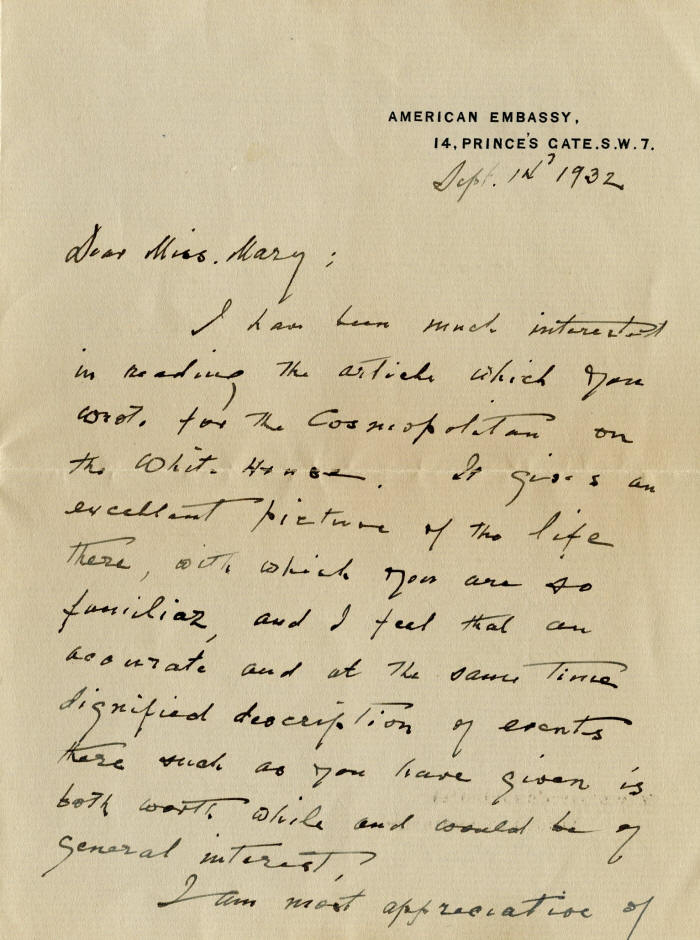 AMERICAN EMBASSY,
14, PRINCE'S GATE. S.W. 7.
Sept. 14 1932
Dear Miss. Mary;
I have been much interested
in reading the article which you
wrote for the Cosmopolitan on
the White House. It gives an
excellent picture of the life
there, with which you are so
familiar, and I feel that an
accurate and at the same time
dignified description of events
there such as you have given is
both worth while and would be of
general interest.
I am most appreciative of